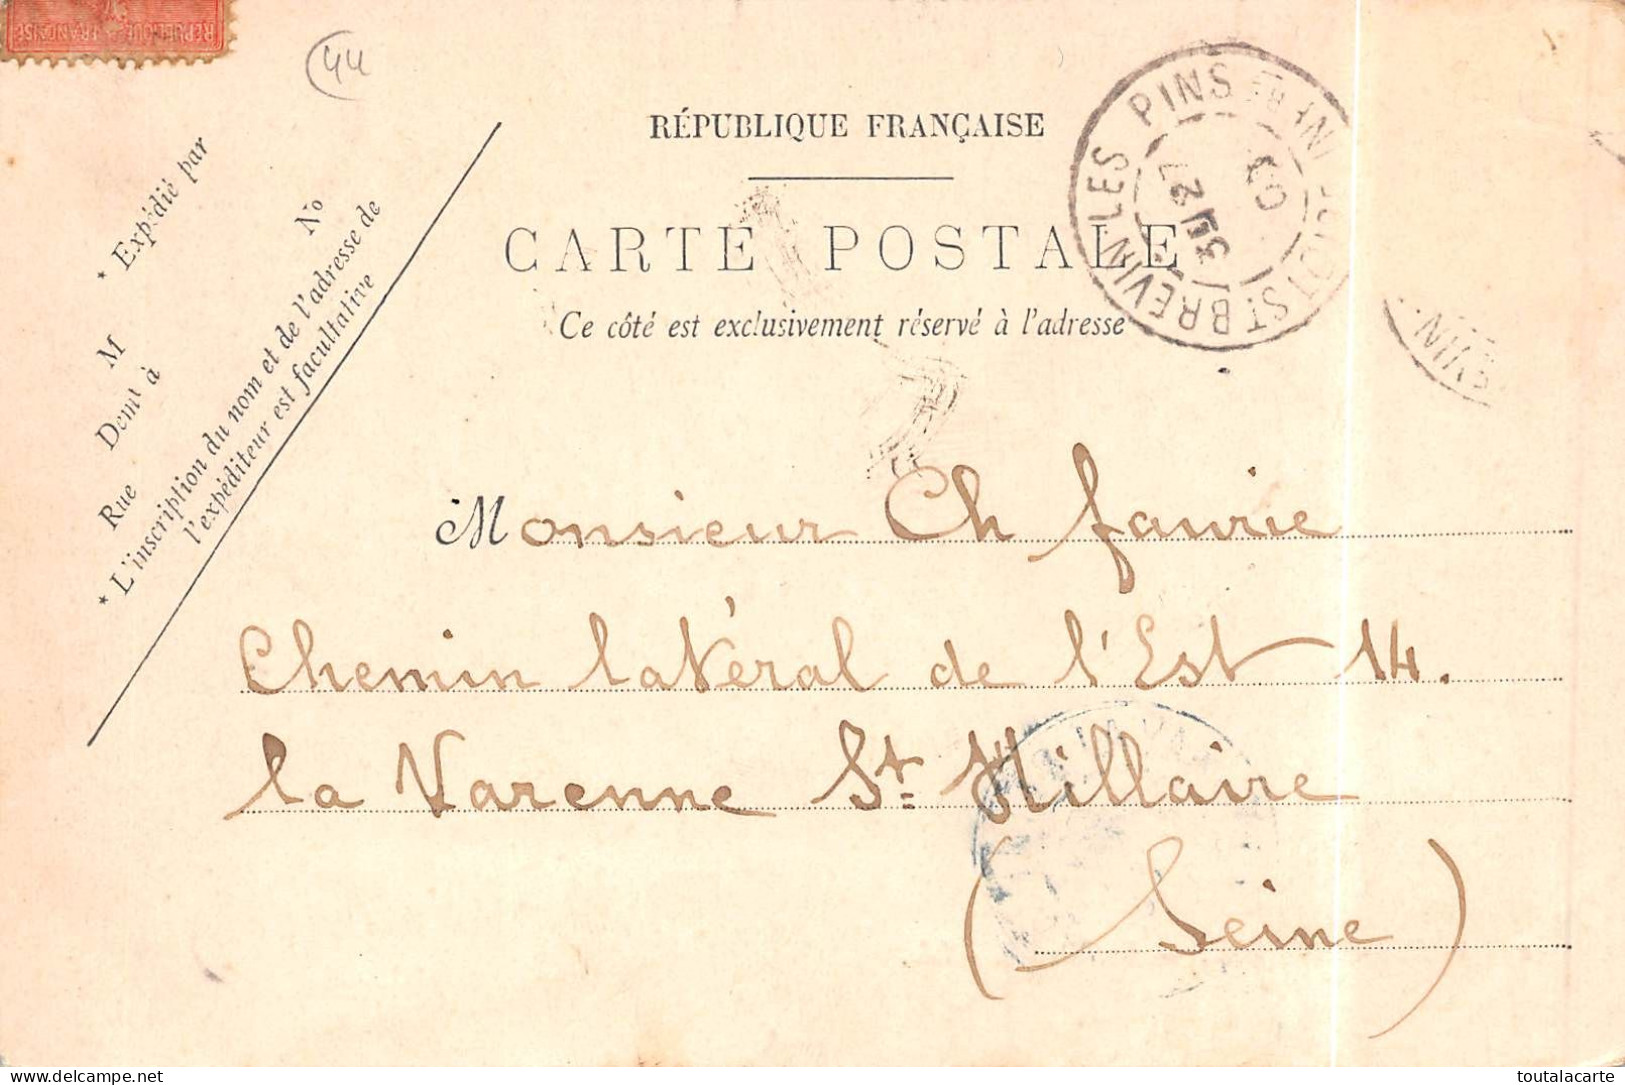 RÉPUBLIQUE FRANÇAISE
44
RÉPUBLIQUE FRANÇAISE
CARTE POSTALE
Ce côté est exclusivement réservé à l'adresse
* Expédié par
M
No
Demt à
Rue
* L'inscription du nom et de l'adresse de
l'expéditeur est facultative
ST BREVIN LES PINS
27
03
EVIN
Monsieur Ch faurie
Chemin latéral de l'Est 14.
la Varenne St Hillaire
(Seine)
delcampe.net
toutalacarte